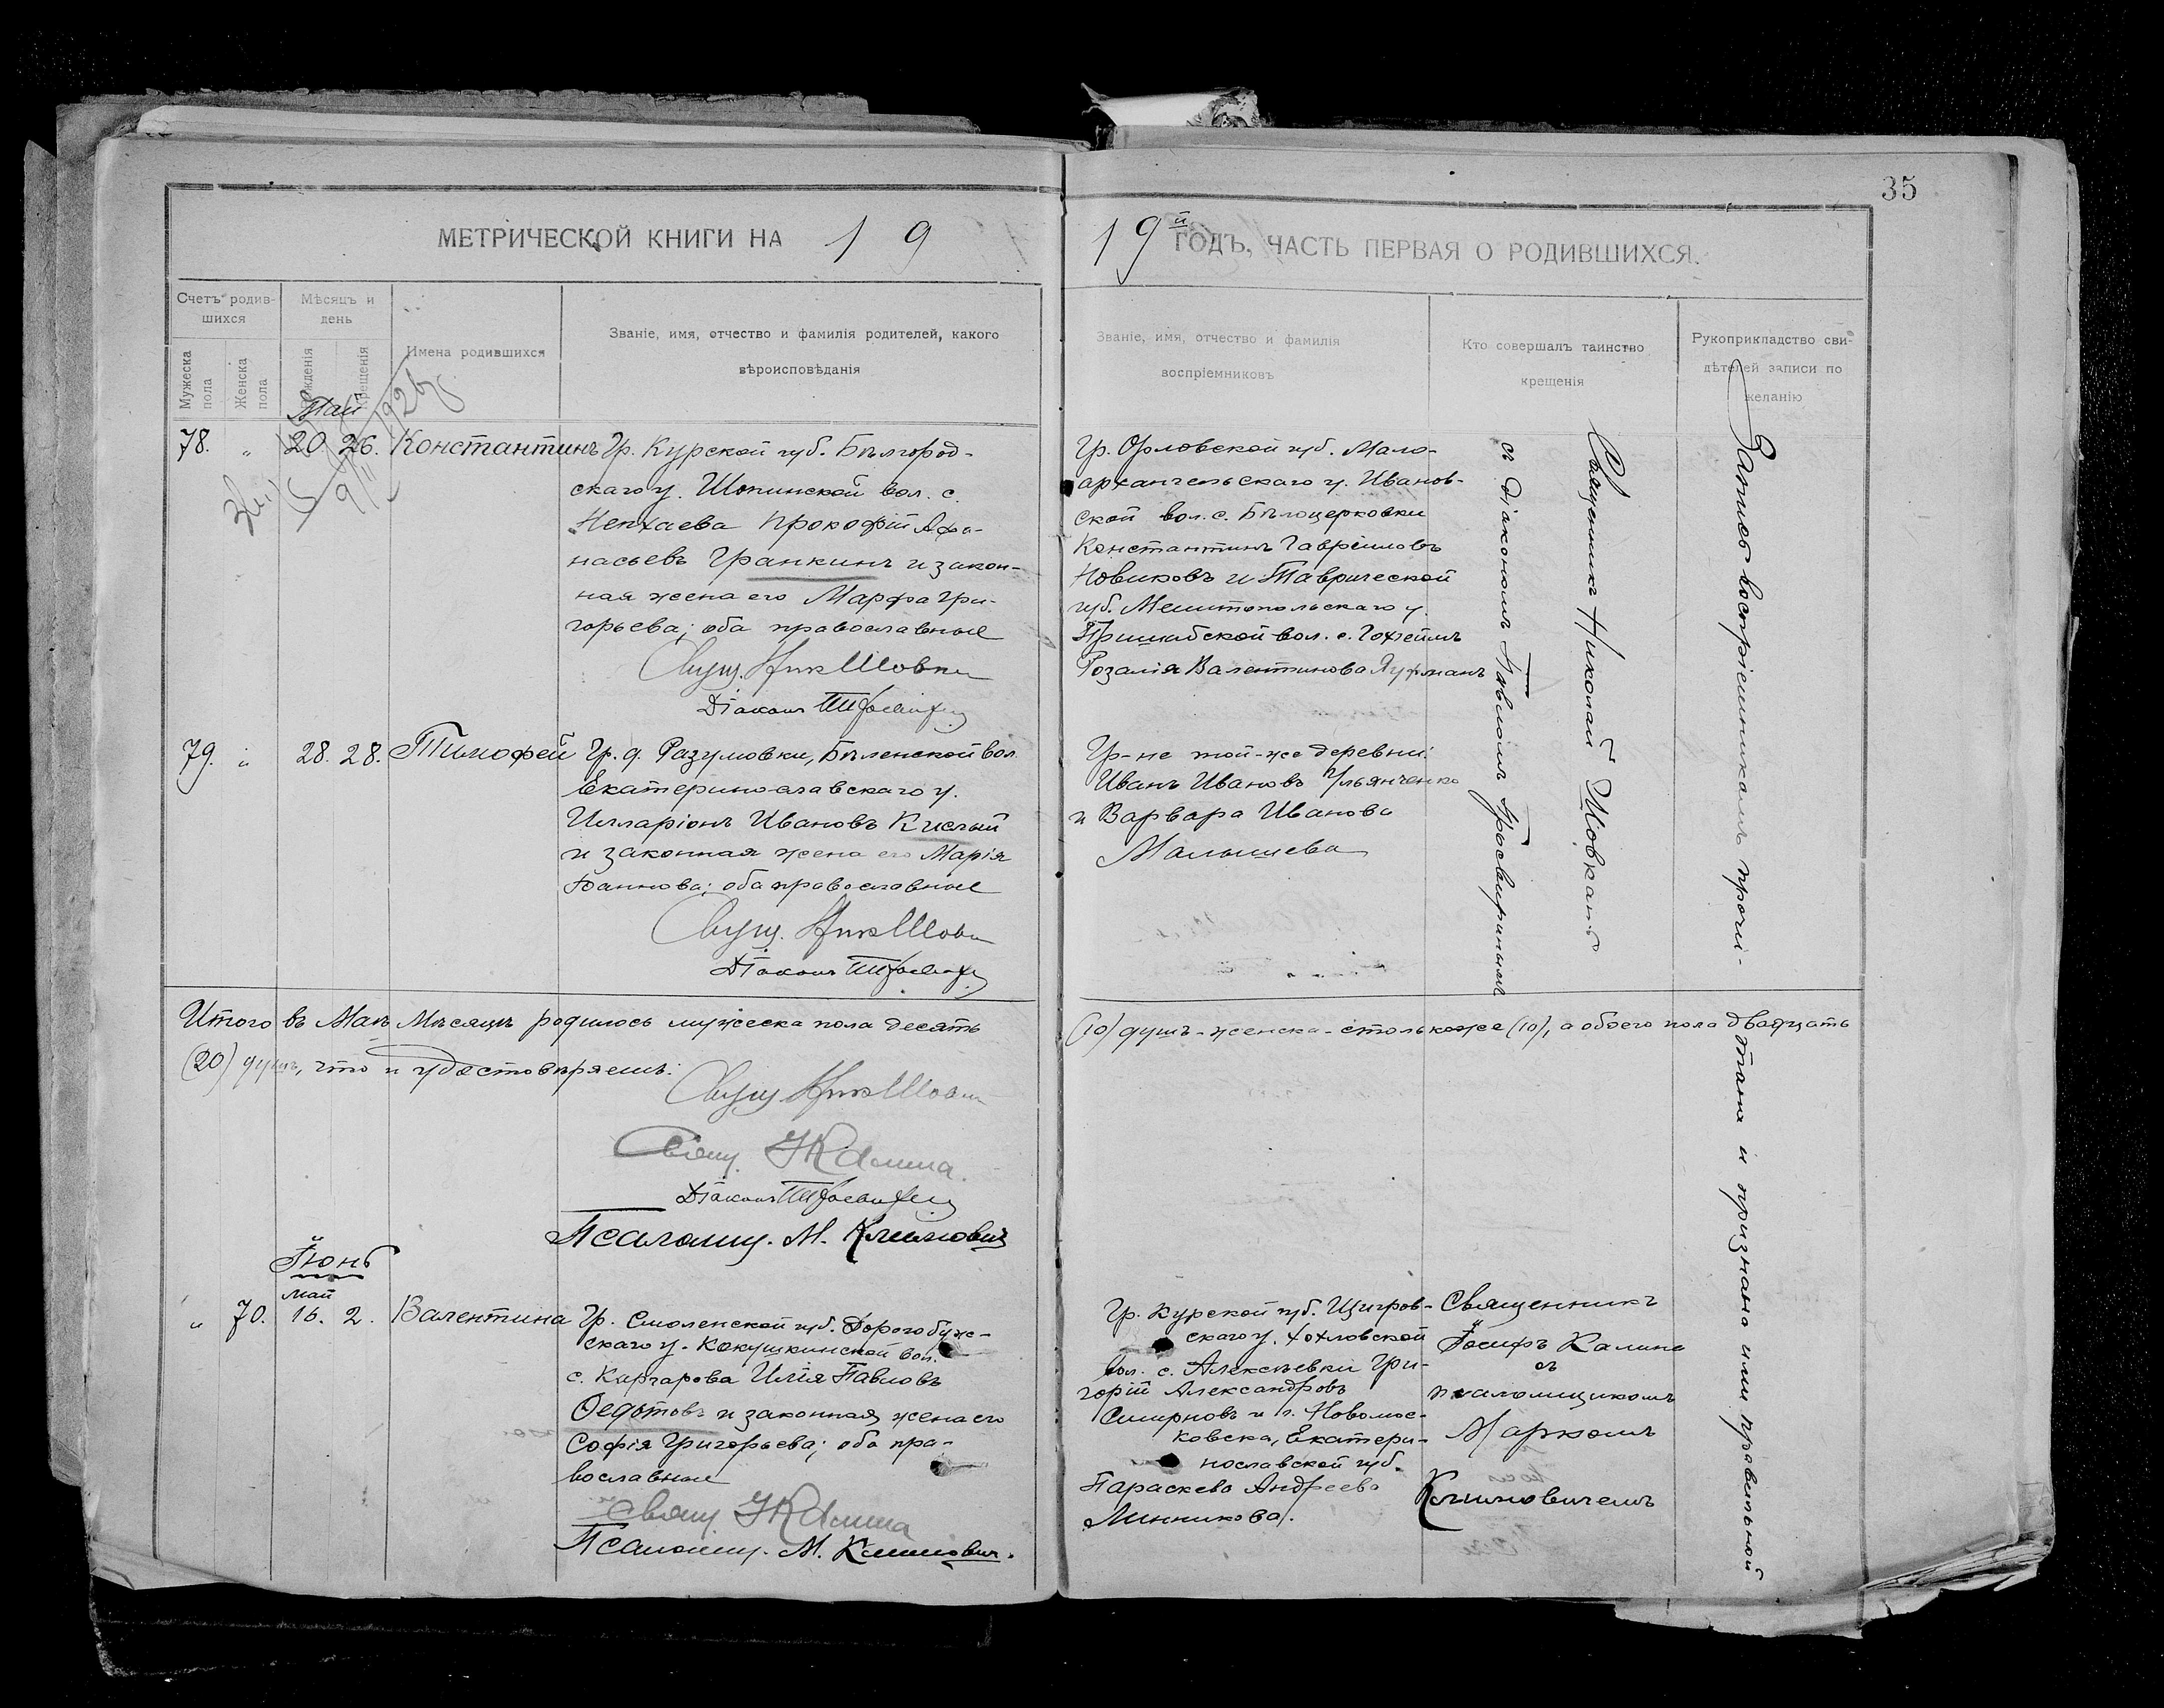 35
МЕТРИЧЕСКОЙ КНИГИ НА 19
19й ГОДЪ, ЧАСТЬ ПЕРВАЯ О РОДИВШИХСЯ.
Счетъ родив-
шихся
Мужеска пола
Женска пола
Мѣсяцъ и
день
рожденія
крещенія
Имена родившихся
Званіе, имя, отчество и фамилія родителей, какого
вѣроисповѣданія
Званіе, имя, отчество и фамилія
воспріемниковъ
Кто совершалъ таинство
крещенія
Рукоприкладство сви-
дѣтелей записи по
желанію
Май
78. " 20. 26. Константинъ
Гр. Курской губ. Бѣлгород-
скаго у. Шопинской вол. с.
Непхаева Прокофій Афа-
насьевъ Гранкинъ и закон-
ная жена его Марфа Гри-
горьева; оба православные
Свящ. Ник Шовка
Діаконъ
Гр. Орловской губ. Мало-
архангельскаго у. Иванов-
ской вол. с. Бѣлоцерковки
Константинъ Гавріиловъ
Новиковъ и Таврической
губ. Мелитопольскаго у.
Пришибской вол. с.
Розалія Валентинова
Священникъ Николай Шовканъ
съ діакономъ Павломъ
Запись воспріемниками прочи-
тана и признана ими правильной
79. " 28. 28. Тимофей
Гр. д. Разумовки, Бѣленской вол.
Екатеринославскаго у.
Илларіонъ Ивановъ Кислый
и законная жена его Марія
Іоаннова; оба православные
Свящ. Ник Шовк
Діаконъ
Гр-не той-же деревни:
Иванъ Ивановъ Ульянченко
и Варвара Иванова
Малышева
Итого въ Маѣ мѣсяцѣ родилось мужеска пола десять (10) душъ - женска - столько же (10), а обоего пола двадцать
(20) душъ, что и удостовѣряемъ:
Свящ. Ник Шовк
Свящ. І Калина
Діаконъ
Псаломщ. М. Климовичъ
Іюнь
май
" 70. 16. 2. Валентина
Гр. Смоленской губ. Дорогобуж-
скаго у. Кокушкинской вол.
с. Илія Павловъ
Ѳедотовъ и законная жена его
Софія Григорьева; оба пра-
вославные
Свящ. І Калина
Псаломщ. М. Климович.
Гр. Курской губ. Щигров-
скаго у. Хохловской
вол. с. Алексѣевки Гри-
горій Александровъ
Смирновъ и г. Новомос-
ковска, Екатери-
нославской губ.
Параскева Андреева
Минникова.
Священникъ
Іосифъ Калина
съ
псаломщикомъ
Маркомъ
Климовичемъ